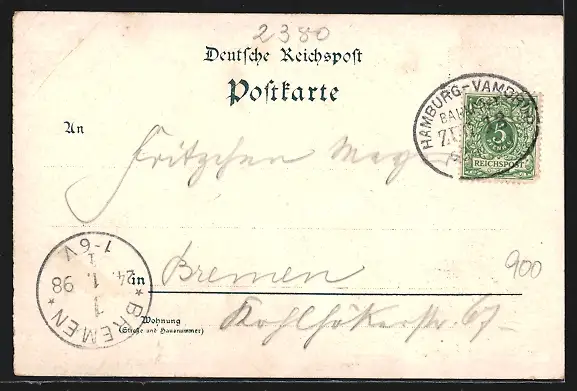 2380
Deutsche Reichspost
Postkarte
HAMBURG-VAMDRUP
BAHNPOST
ZUG
5
PFENNIG
REICHSPOST
An
Fritzchen Meyer
1-6V
24. 1. 98
* BREMEN *
1
in Bremen
900
Wohnung
(Straße und Hausnummer)
Kohlhökerstr 67